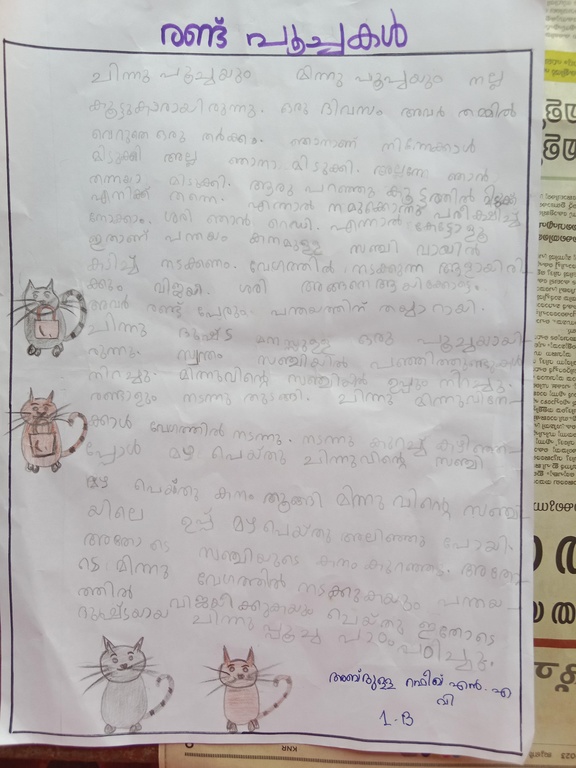 രണ്ട് പൂച്ചകൾ
ചിന്നു പൂച്ചയും മിന്നു പൂച്ചയും നല്ല
കൂട്ടുകാരായിരുന്നു. ഒരു ദിവസം അവർ തമ്മിൽ
വെറുതെ ഒരു തർക്കം. ഞാനാണ് നിന്നേക്കാൾ
മിടുക്കി അല്ല ഞാനാ മിടുക്കി. അല്ലന്നേ ഞാൻ
തന്നെയാ മിടുക്കി. ആരു പറഞ്ഞു കൂട്ടത്തിൽ മിടുക്കി
എനിക്ക് തന്നെ. എന്നാൽ നമുക്കൊന്നു പരീക്ഷിച്ച്
നോക്കാം. ശരി ഞാൻ റെഡി. എന്നാൽ കേട്ടോളൂ
ഇതാണ് പന്തയം കനമുള്ള സഞ്ചി വായിൽ
കടിച്ച് നടക്കണം. വേഗത്തിൽ നടക്കുന്ന ആളായിരി
ക്കും വിജയി. ശരി അങ്ങനെ ആകട്ടെ.
അവർ രണ്ട് പേരും പന്തയത്തിന് തയ്യാറായി.
ചിന്നു ദുഷ്ട ഒരു പൂച്ചയായി
രുന്നു. സ്വന്തം സഞ്ചിയിൽ പഞ്ഞിത്തുണ്ടുകൾ
നിറച്ചു. മിന്നുവിന്റെ സഞ്ചിയിൽ ഉപ്പും നിറച്ചു.
രണ്ടാളും നടന്നു തുടങ്ങി. ചിന്നു മിന്നുവിനേ
ക്കാൾ വേഗത്തിൽ നടന്നു. നടന്നു കുറച്ചു കഴിഞ്ഞ
പ്പോൾ മഴ പെയ്തു ചിന്നുവിന്റെ സഞ്ചി
മഴ പെയ്തു കനം തൂങ്ങി മിന്നു വിന്റെ സഞ്ചി
യിലെ ഉപ്പ് മഴ പെയ്തു അലിഞ്ഞു പോയി.
അതോടെ സഞ്ചിയുടെ കനം കുറഞ്ഞു. അതോ
ടെ മിന്നു വേഗത്തിൽ നടക്കുകയും പന്തയ
ത്തിൽ വിജയിക്കുകയും ചെയ്തു ഇതോടെ
ദുഷ്ടയായ ചിന്നു പൂച്ച പാഠം പഠിച്ചു.
അബ്ദുള്ള റഫീഖ് എൻ. എ
വി
1-B
KNR